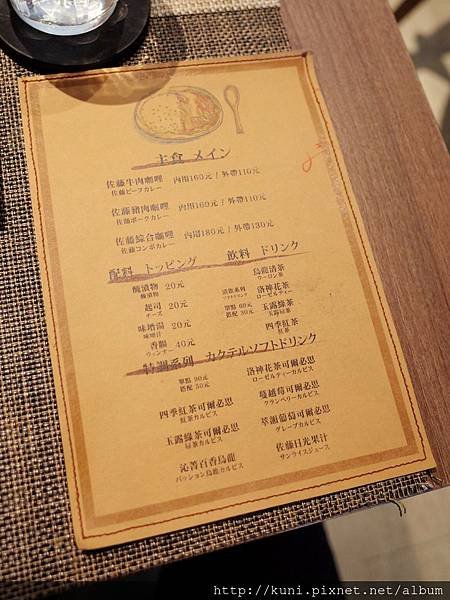 主食 メイン
佐藤牛肉咖哩 內用160元 / 外帶110元
佐藤ビーフカレー
佐藤豬肉咖哩 內用160元 / 外帶110元
佐藤ポークカレー
佐藤綜合咖哩 內用180元 / 外帶130元
佐藤コンボカレー
配料 トッピング
醃漬物 20元
醃漬物
起司 20元
チーズ
味增湯 20元
味増汁
香腸 40元
ウィンナー
飲料 ドリンク
烏龍清茶
ウーロン茶
清飲系列
ソフトドリンク
單點 60元
搭配 30元
洛神花茶
ローゼルティー
玉露綠茶
玉露緑茶
四季紅茶
紅茶
特調系列 カクテルソフトドリンク
單點 90元
搭配 50元
洛神花茶可爾必思
ローゼルティーカルピス
四季紅茶可爾必思
紅茶カルピス
蔓越莓可爾必思
クランベリーカルピス
玉露綠茶可爾必思
緑茶カルピス
葡萄可爾必思
グレープカルピス
沁菁百香烏龍
パッション烏龍カルピス
佐藤日光果汁
サンライズジュース
http://kuni.pixnet.net/album